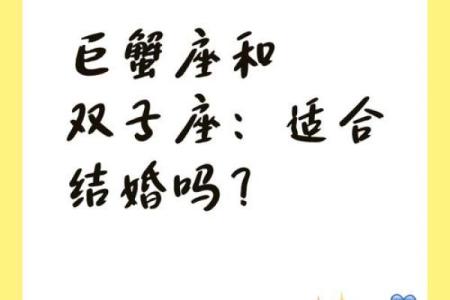 巨蟹座和
双子座：适合
结婚吗？